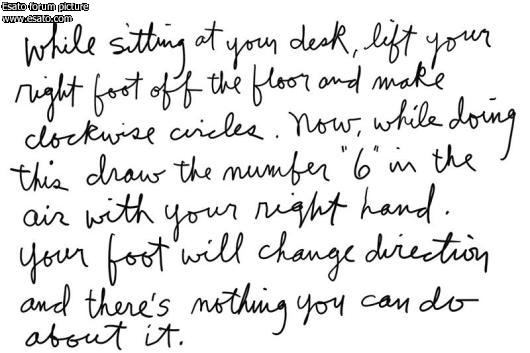 Esato forum picture
www.esato.com
While sitting at your desk, lift your
right foot off the floor and make
clockwise circles. Now, while doing
this draw the number "6" in the
air with your right hand.
Your foot will change direction
and there's nothing you can do
about it.